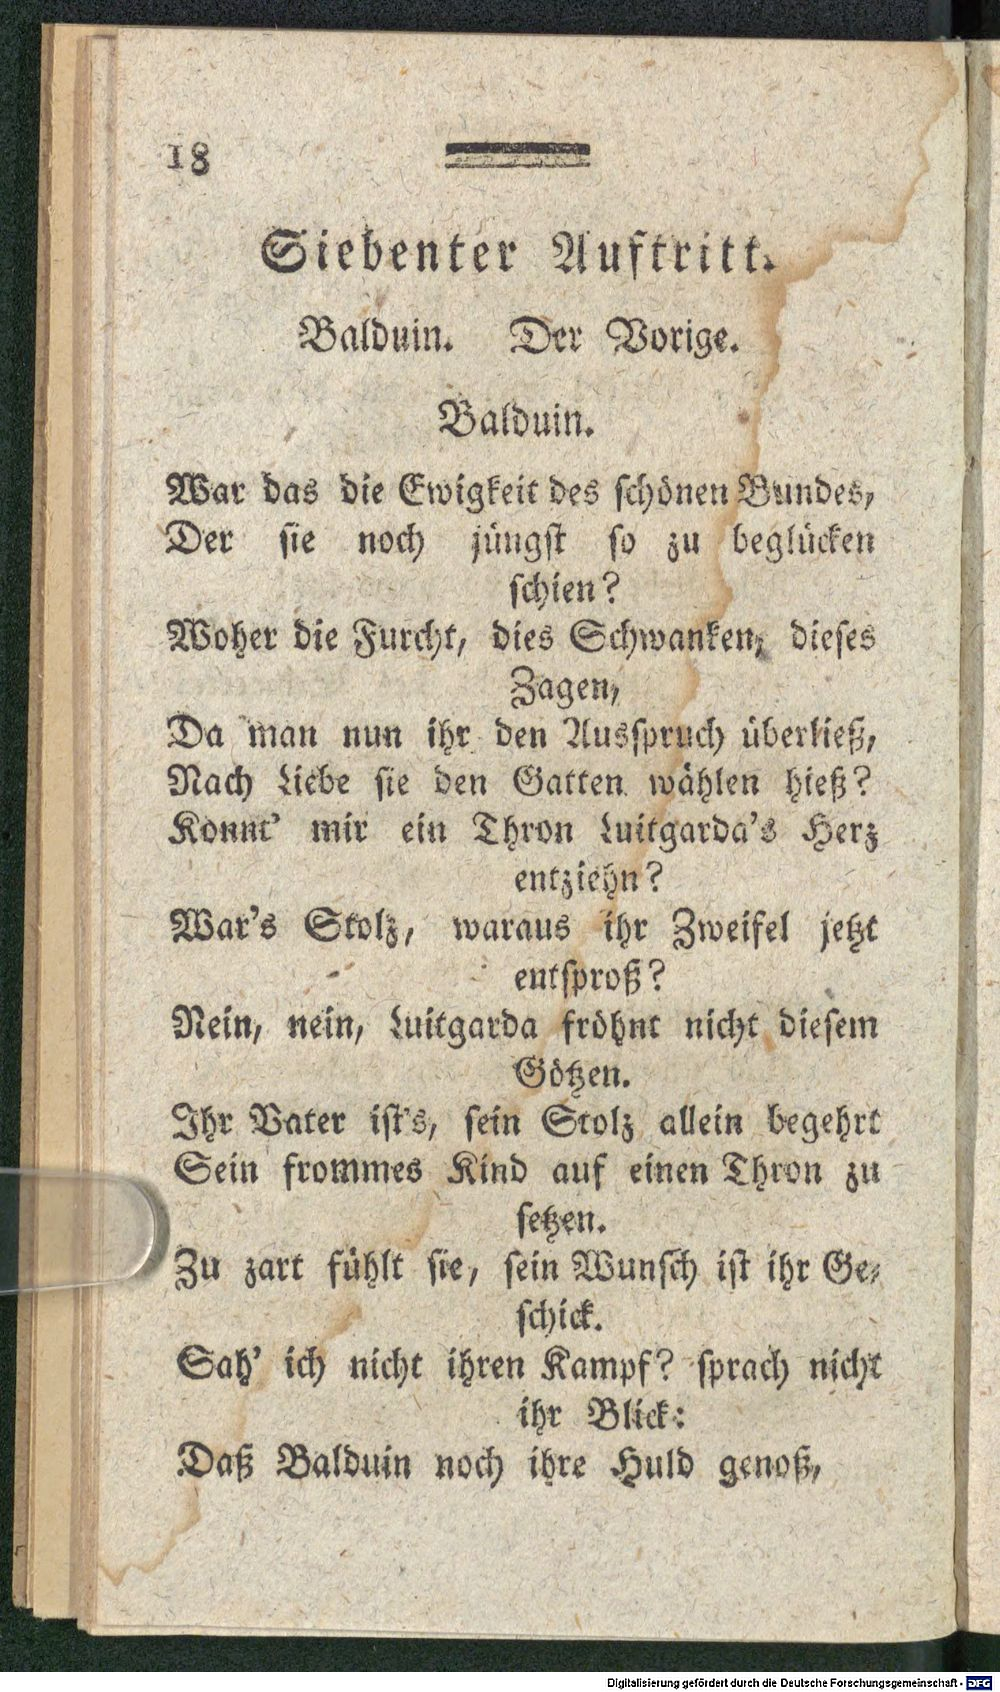 18
Siebenter Auftritt.
Balduin. Der Vorige.
Balduin.
War das die Ewigkeit des schönen Bundes,
Der sie noch jüngst so zu beglücken
schien?
Woher die Furcht, dies Schwanken, dieses
Zagen,
Da man nun ihr den Ausspruch überließ,
Nach Liebe sie den Gatten wählen hieß?
Konnt' mir ein Thron Luitgarda's Herz
entziehn?
War's Stolz, waraus ihr Zweifel jetzt
entsproß?
Nein, nein, Luitgarda fröhnt nicht diesem
Götzen.
Ihr Vater ist's, sein Stolz allein begehrt
Sein frommes Kind auf einen Thron zu
setzen.
Zu zart fühlt sie, sein Wunsch ist ihr Ge-
schick.
Sah' ich nicht ihren Kampf? sprach nicht
ihr Blick:
Daß Balduin noch ihre Huld genoß,
Digitalisierung gefördert durch die Deutsche Forschungsgemeinschaft - DFG